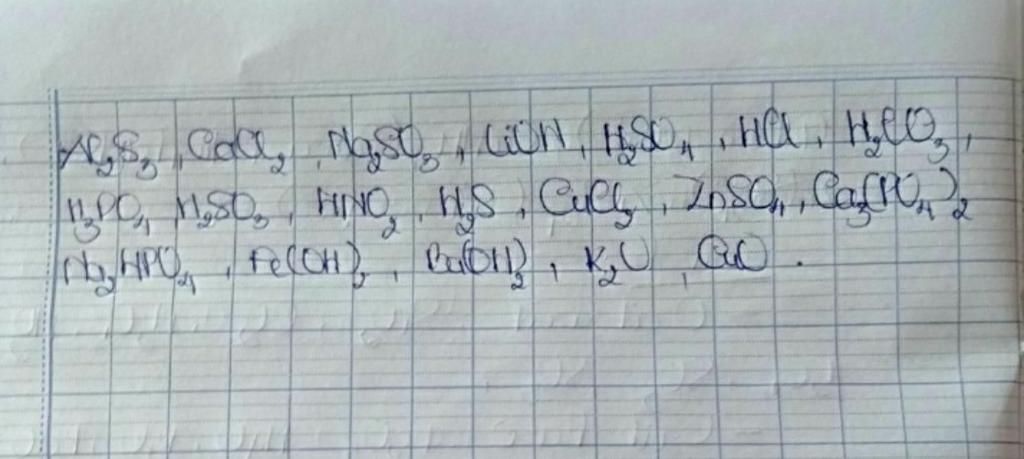 Al₂S₃, CaCl₂, Na₂SO₃, LiOH, H₂SO₄, HCl, H₂CO₃,
H₃PO₄, H₂SO₃, HNO₂, H₂S, CuCl₂, ZnSO₄, Ca₃(PO₄)₂
Na₂HPO₄, Fe(OH)₂, Ba(OH)₂, K₂O, CuO.